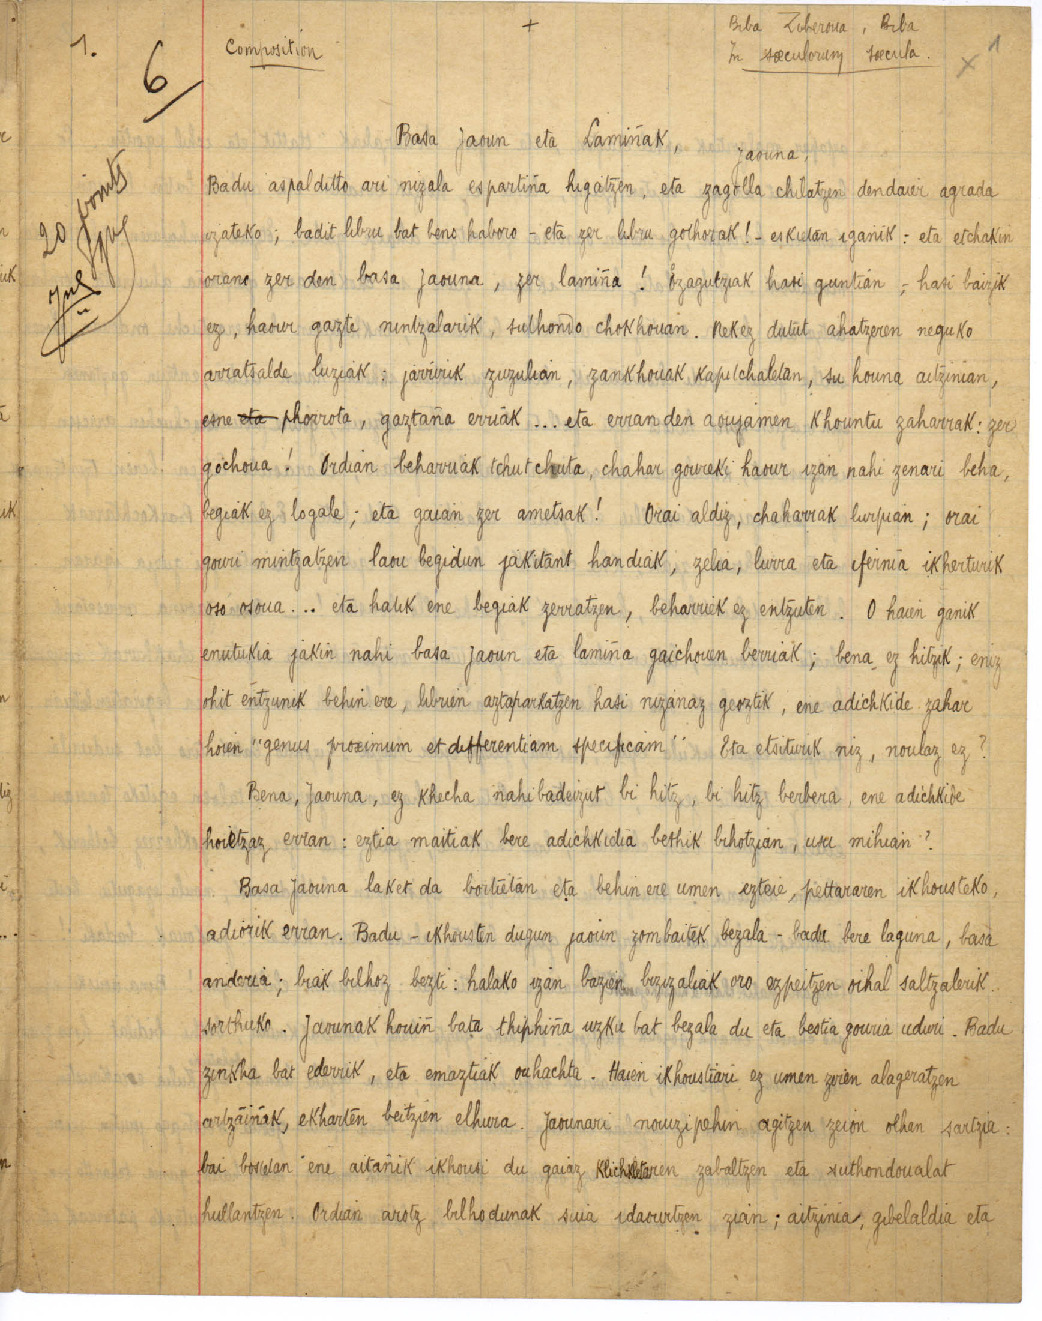 +
Biba Ziberoua, Biba
In sæculorum sæcula.
1.
6
Composition
1
x
20 points
Basa Jaoun eta Lamiñak,
Jaouna,
Badu aspalditto ari nizala espartiña higatzen, eta zagolla chilatzen dendarier agrada
izateko; badit libru bat beno haboro - eta zer libru gothorak! - eskietan iganik: eta etchakin
orano zer den basa Jaouna, zer lamiña! Ezagutziak hasi guntian, - hasi baizik
ez, haour gazte nintzalarik, suthondo chokhouan. Nekez dutut ahatzeren neguko
arratsalde luziak: jarririk zuzulian, zankhouak kapitchaletan, su houna aitzinian,
esne eta phorrota, gaztaña erriak ... eta erran den aoujamen khountu zaharrak: zer
gochoua! Ordian beharriak tchutchuta, chahar goureki haour izan nahi zenari beha,
begiak ez logale; eta gaian zer ametsak! Orai aldiz, chaharrak lurpian; orai
gouri mintzatzen laou begidun jakitant handiak, zelia, lurra eta ifernia ikherturik
oso osoua... eta halik ene begiak zerratzen, beharriek ez entzuten. O haien ganik
enutukia jakin nahi basa Jaoun eta lamiña gaichouen berriak; bena ez hitzik; eniz
ohit entzunik behin ere, librien aztaparkatzen hasi nizanaz geoztik, ene adichkide zahar
hoien "genus proximum et differentiam specificam" Eta etsiturik niz, noulaz ez?
Bena, Jaouna, ez khecha nahi badeizut bi hitz, bi hitz berbera, ene adichkide
hoietzaz erran: eztia maitiak bere adichkidia bethik bihotzian, usu mihian?
Basa Jaouna laket da bortietan eta behin ere umen ezteie, pettararen ikhousteko,
adiorik erran. Badu - ikhousten dugun jaoun zombaitek bezala - badu bere laguna, basa
anderia; biak bilhoz bezti: halako izan bazien bizizaliak oro ezpeitzen oihal saltzalerik
sorthuko. Jaounak houiñ bata thiphiña uzku bat bezala du eta bestia gouria uduri. Badu
zinkha bat ederrik, eta emaztiak ouhachta. Haien ikhoustiari ez umen zien alageratzen
artzaiñak, ekharten beitzien elhurra. Jaounari nouizipehin agitzen zeion olhan sartzia:
bai bostetan ene aitañik ikhousi du gaiaz zabaltzen eta suthondoualat
hullantzen. Ordian arotz bilhodunak suia idaourtzen zian; aitzinia, gibelaldia eta